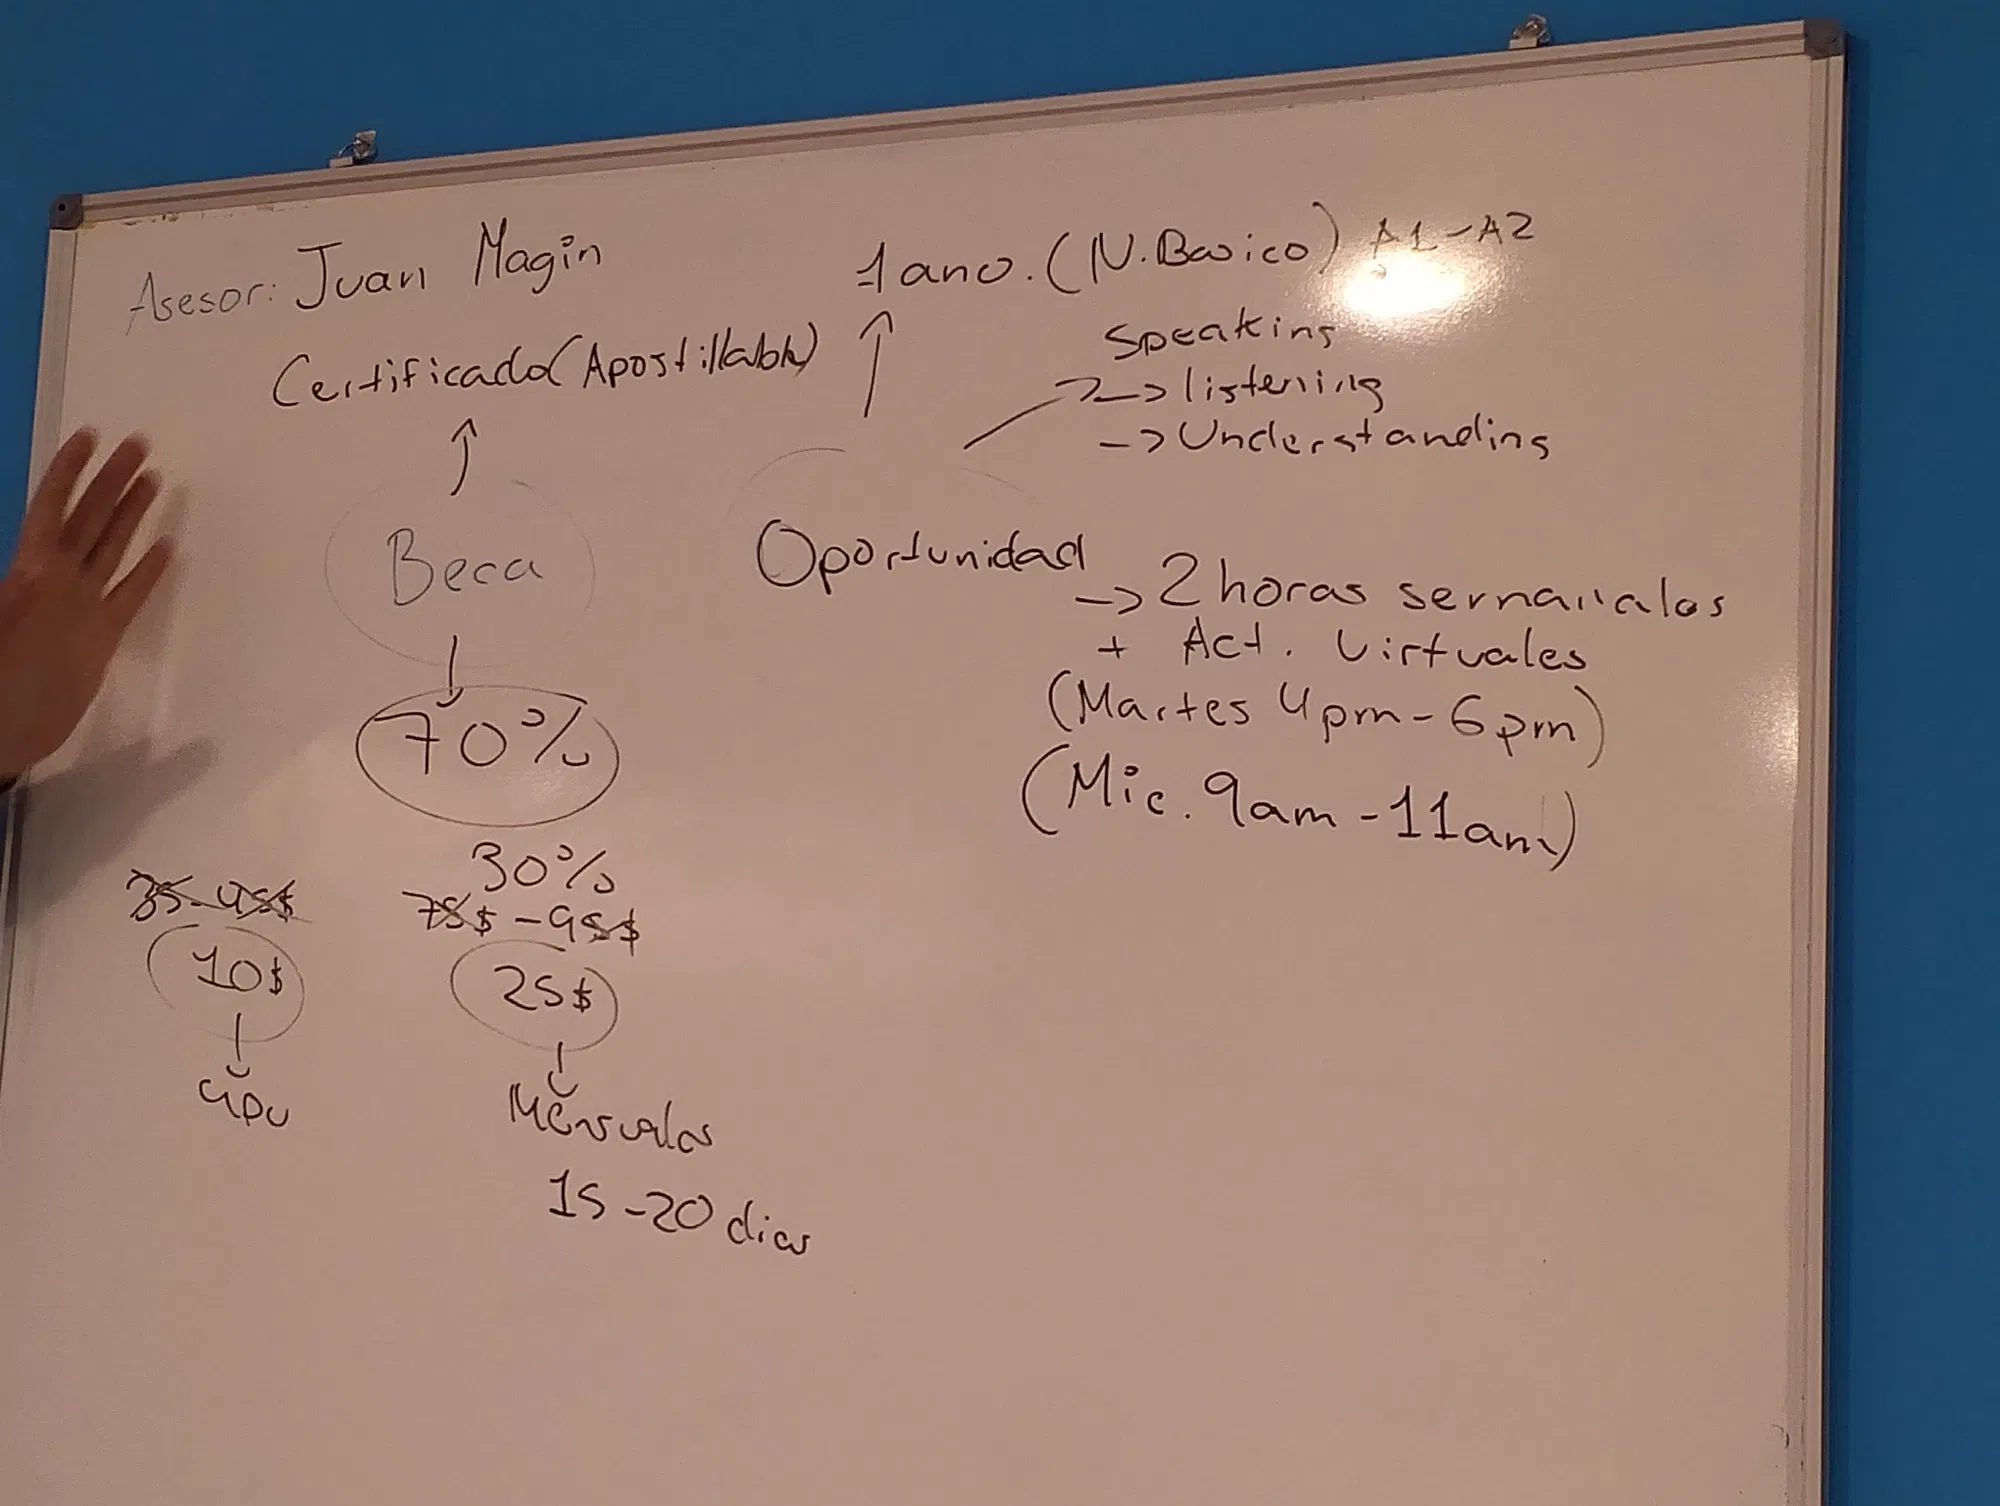 Asesor: Juan Magin
Certificado (Apostillable)
Beca
70%
30%
35-45$
75$-95$
10$
25$
Mensuales
15-20 dias
1 ano. (N. Basico) A1-A2
Speaking
-> listening
-> Understanding
Oportunidad
-> 2 horas semanales
+ Act. Virtuales
(Martes 4pm-6pm)
(Mie. 9am-11am)